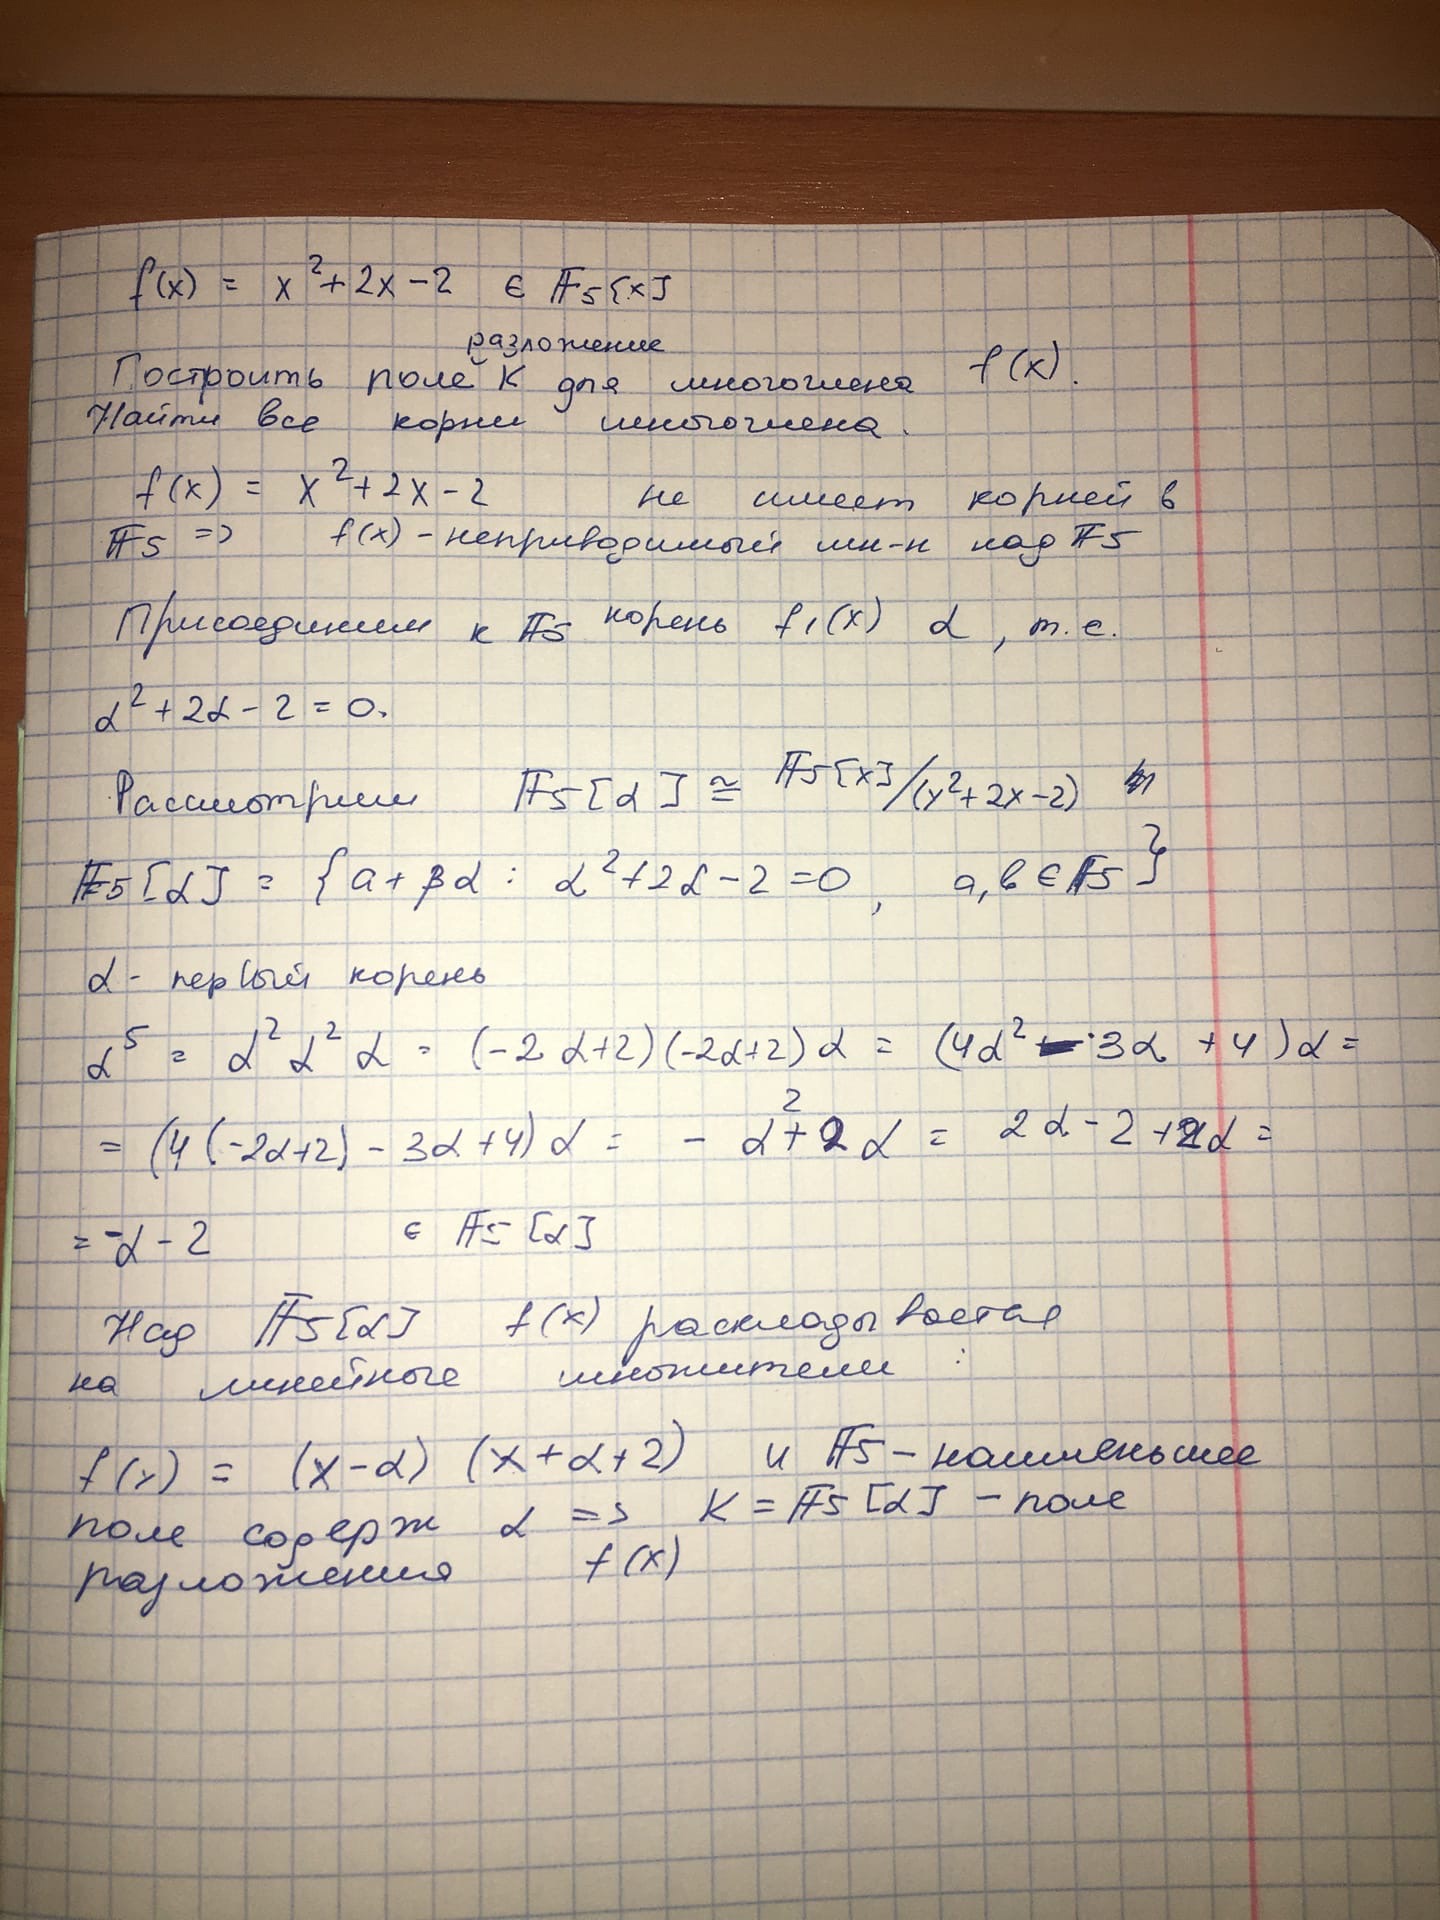 f(x) = x² + 2x - 2 ∈ F₅[x]
разложение
Построить поле K для многочлена f(x).
Найти все корни многочлена.
f(x) = x² + 2x - 2 не имеет корней в
F₅ => f(x) - неприводимый мн-н над F₅
Присоединим к F₅ корень f₁(x) α, т.е.
α² + 2α - 2 = 0.
Рассмотрим F₅[α] ≅ F₅[x]/(x² + 2x - 2)
F₅[α] = {a + βα : α² + 2α - 2 = 0, a, b ∈ F₅}
α - первый корень
α⁵ = α² α² α = (-2α+2)(-2α+2)α = (4α² - 3α + 4)α =
= (4(-2α+2) - 3α + 4)α = - α² + 2α = 2α - 2 + 2α =
= -α - 2 ∈ F₅[α]
Над F₅[α] f(x) раскладывается
на линейные множители :
f(x) = (x - α) (x + α + 2) и F₅ - наименьшее
поле содерж α => K = F₅[α] - поле
разложения f(x)